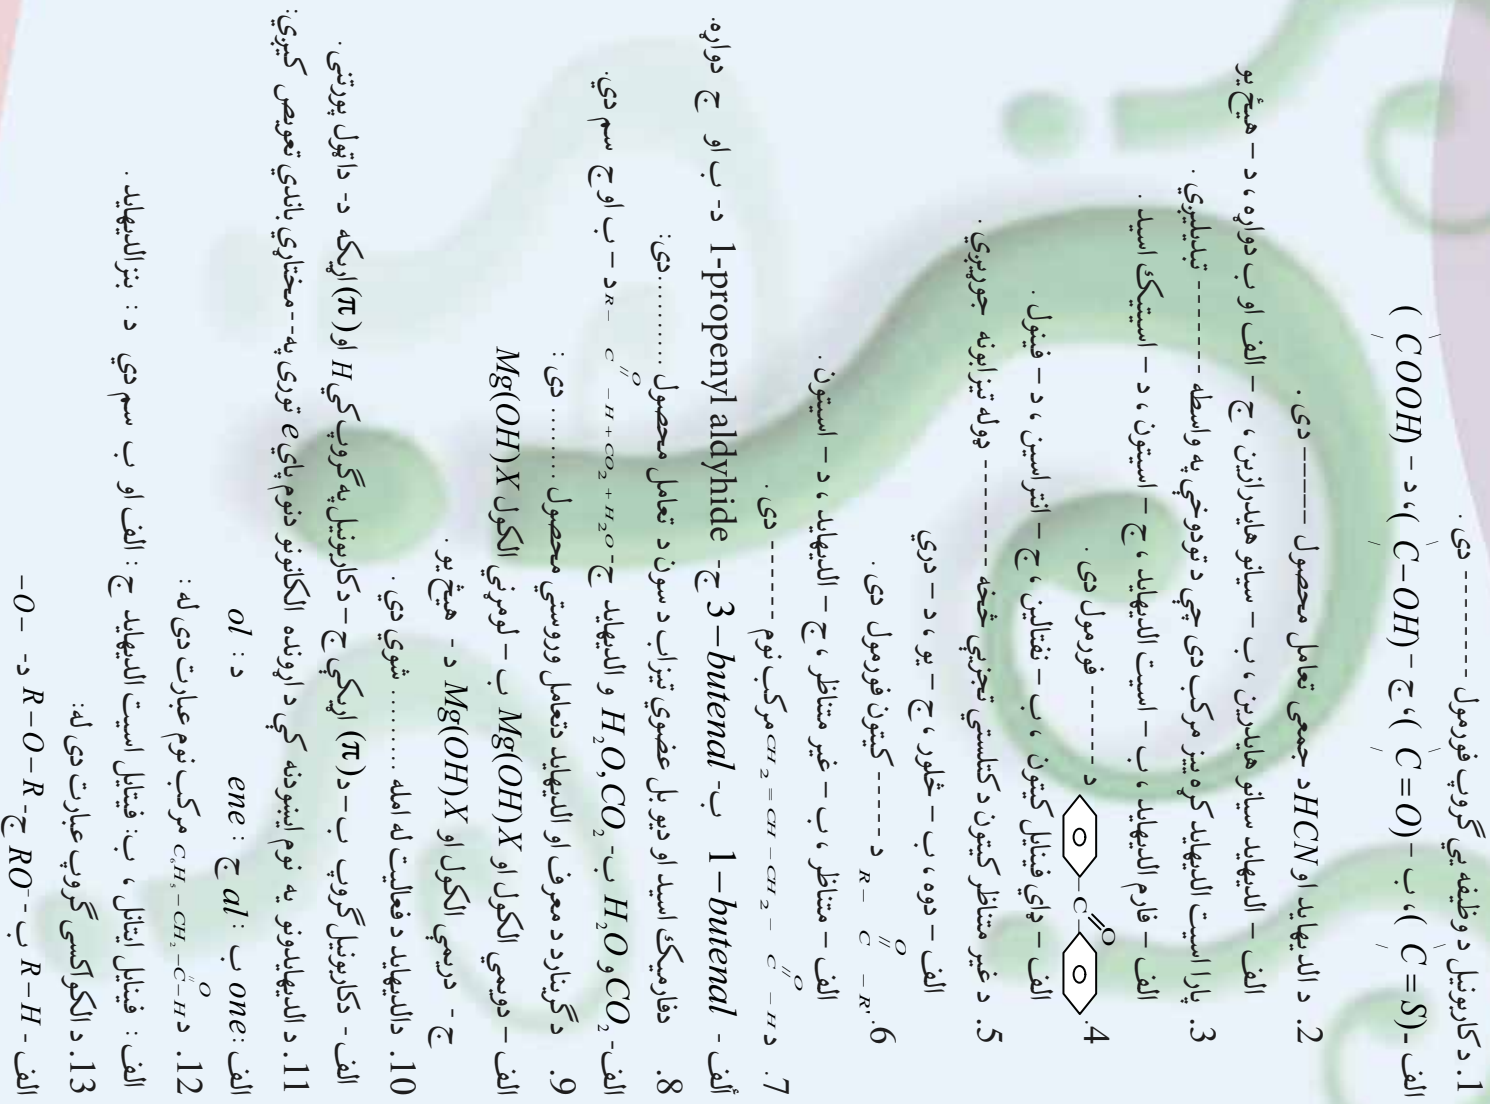 1. د کاربونیل د وظیفه یي گروپ فورمول --------- دی .
الف - (C=S) ، ب - (C=O) ، ج - (C-OH) ، د - (COOH)
2. د الدیهاید او HCN د جمعی تعامل محصول ------ دی .
الف – الدیهاید سیانو هایدرین ، ب – سیانو هایدرازین ، ج – الف او ب دواړه ، د – هیڅ یو
3. پارا اسیت الدیهاید کړه ییز مرکب دی چې د تودوخې په واسطه --------- تبدیلیږي .
الف – فارم الدیهاید ، ب – اسیت الدیهاید ، ج – اسیتون ، د – اسیتیک اسید .
4. C=O د ------- فورمول دی .
الف – ډای فینایل کیتون ، ب – نفتالین ، ج – انتراسین ، د – فینول .
5. د غیر متناظر کیتون د کتلستي تجزیې څخه --------- ډوله تیزابونه جوړیږي .
الف – دوه ، ب – څلور ، ج – یو ، د – دري
6. R – C(=O) – R' د ------ کیتون فورمول دی .
الف – متناظر ، ب – غیر متناظر ، ج – الدیهاید ، د – اسیتون .
7. د CH2 = CH – CH2 – C(=O) – H مرکب نوم ------- دی .
ألف - 1-butenal ب- 3-butenal ج- 1-propenyl aldyhide د- ب او ج دواړه.
8. دفارمیک اسید او دیو بل عضوي تیزاب د سون د تعامل محصول ............دی:
الف- CO2 و H2O ب- H2O,CO2 و الدیهاید ج- R – C(=O) – H + CO2 + H2O د – ب او ج سم دي.
9. د گرینارد د معرف او الدیهاید دتعامل وروستي محصول .......... دی :
الف – دویمي الکول او Mg(OH)X ب – لومړني الکول Mg(OH)X
ج - دریمي الکول او Mg(OH)X د - هیڅ یو.
10. دالدیهاید د فعالیت له امله ......... شوي دي .
الف - دکاربونیل گروپ ب – د(π) اړیکې ج – دکاربونیل په گروپ کې H او (π) اړیکه د- داټول پورتنی .
11. د الدیهایدونو په نوم ایښودنه کې د اړونده الکانونو دنوم پای e توری په--مختاړي باندې تعویض کیږي:
الف: one ب : al ج : ene د : ol
12. د C6H5 – CH2 – C(=O) – H مرکب نوم عبارت دی له :
الف : فینایل ایتانل ، ب: فینایل اسیت الدیهاید ج : الف او ب سم دي د : بنزالدیهاید .
13. د الکواکسی گروپ عبارت دی له:
الف - R – H ب - RO⁻ ج- R – O – R د- – O –